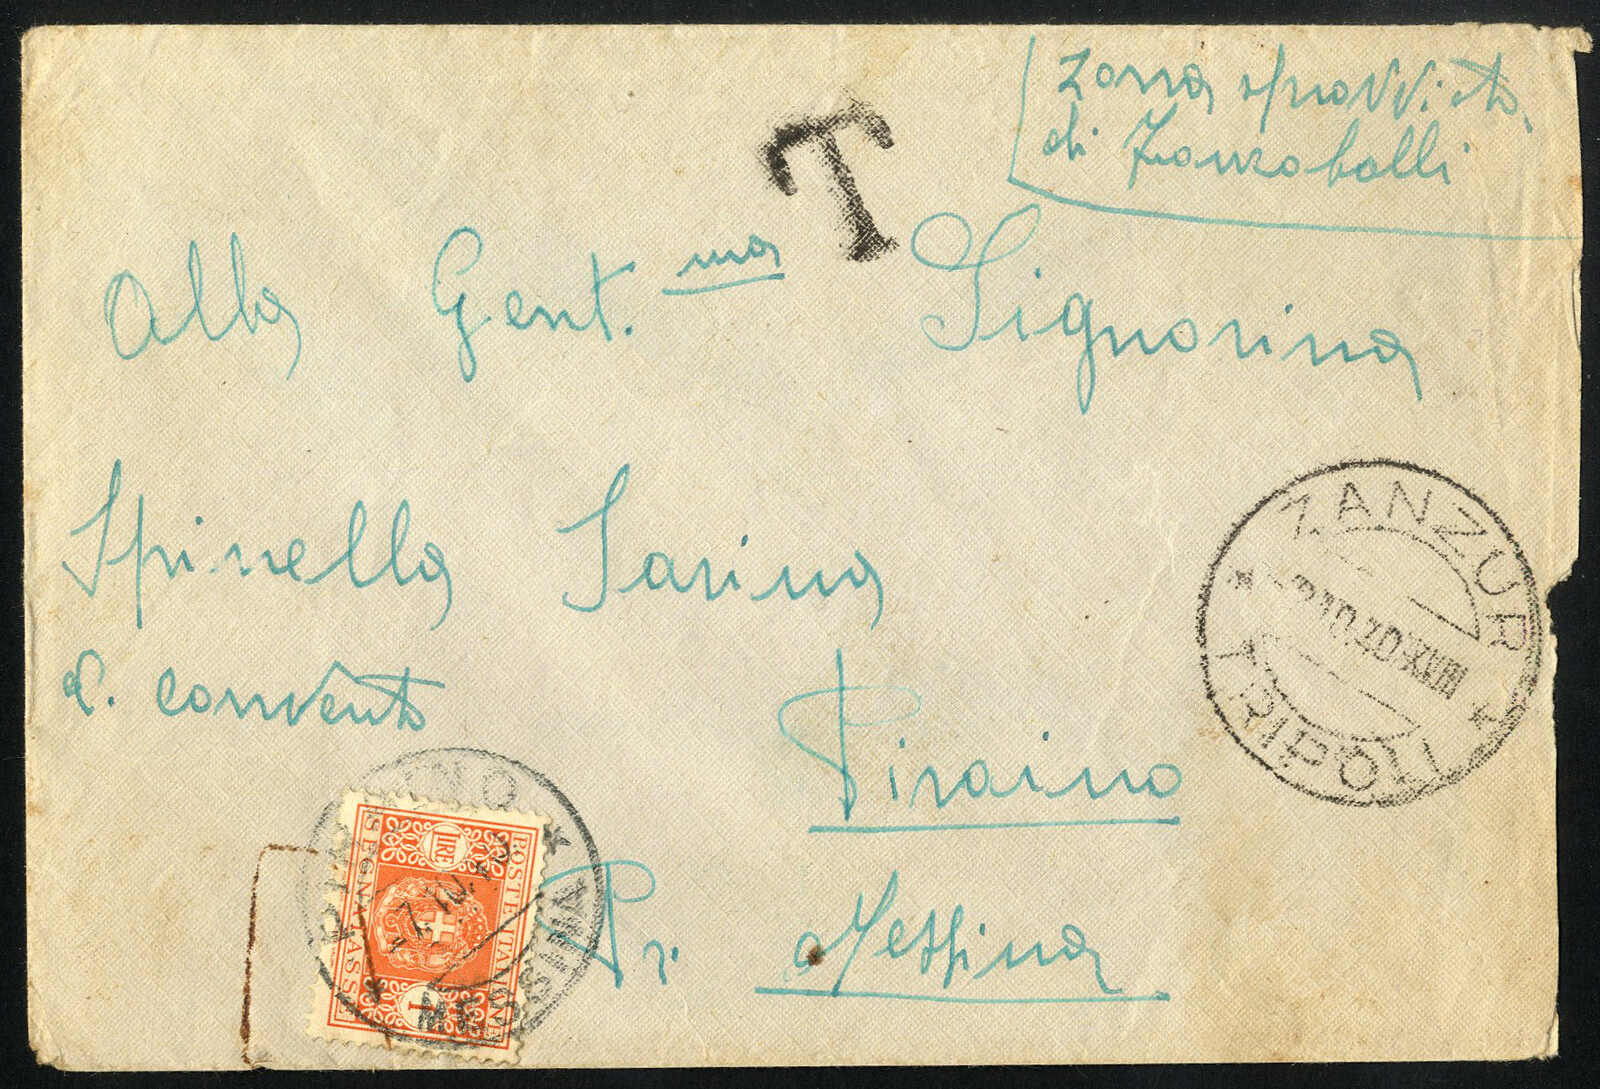 Zona sprovvista
di Francobolli
T
Alla Gent.ma Signorina
Spinella Sarina
C. Convento
Piraino
Pr. Messina
ZANZUR
TRIPOLI
PIRAINO
MESSINA
7.10.40
POSTE ITALIANE
SEGNATASSE
LIRE
1